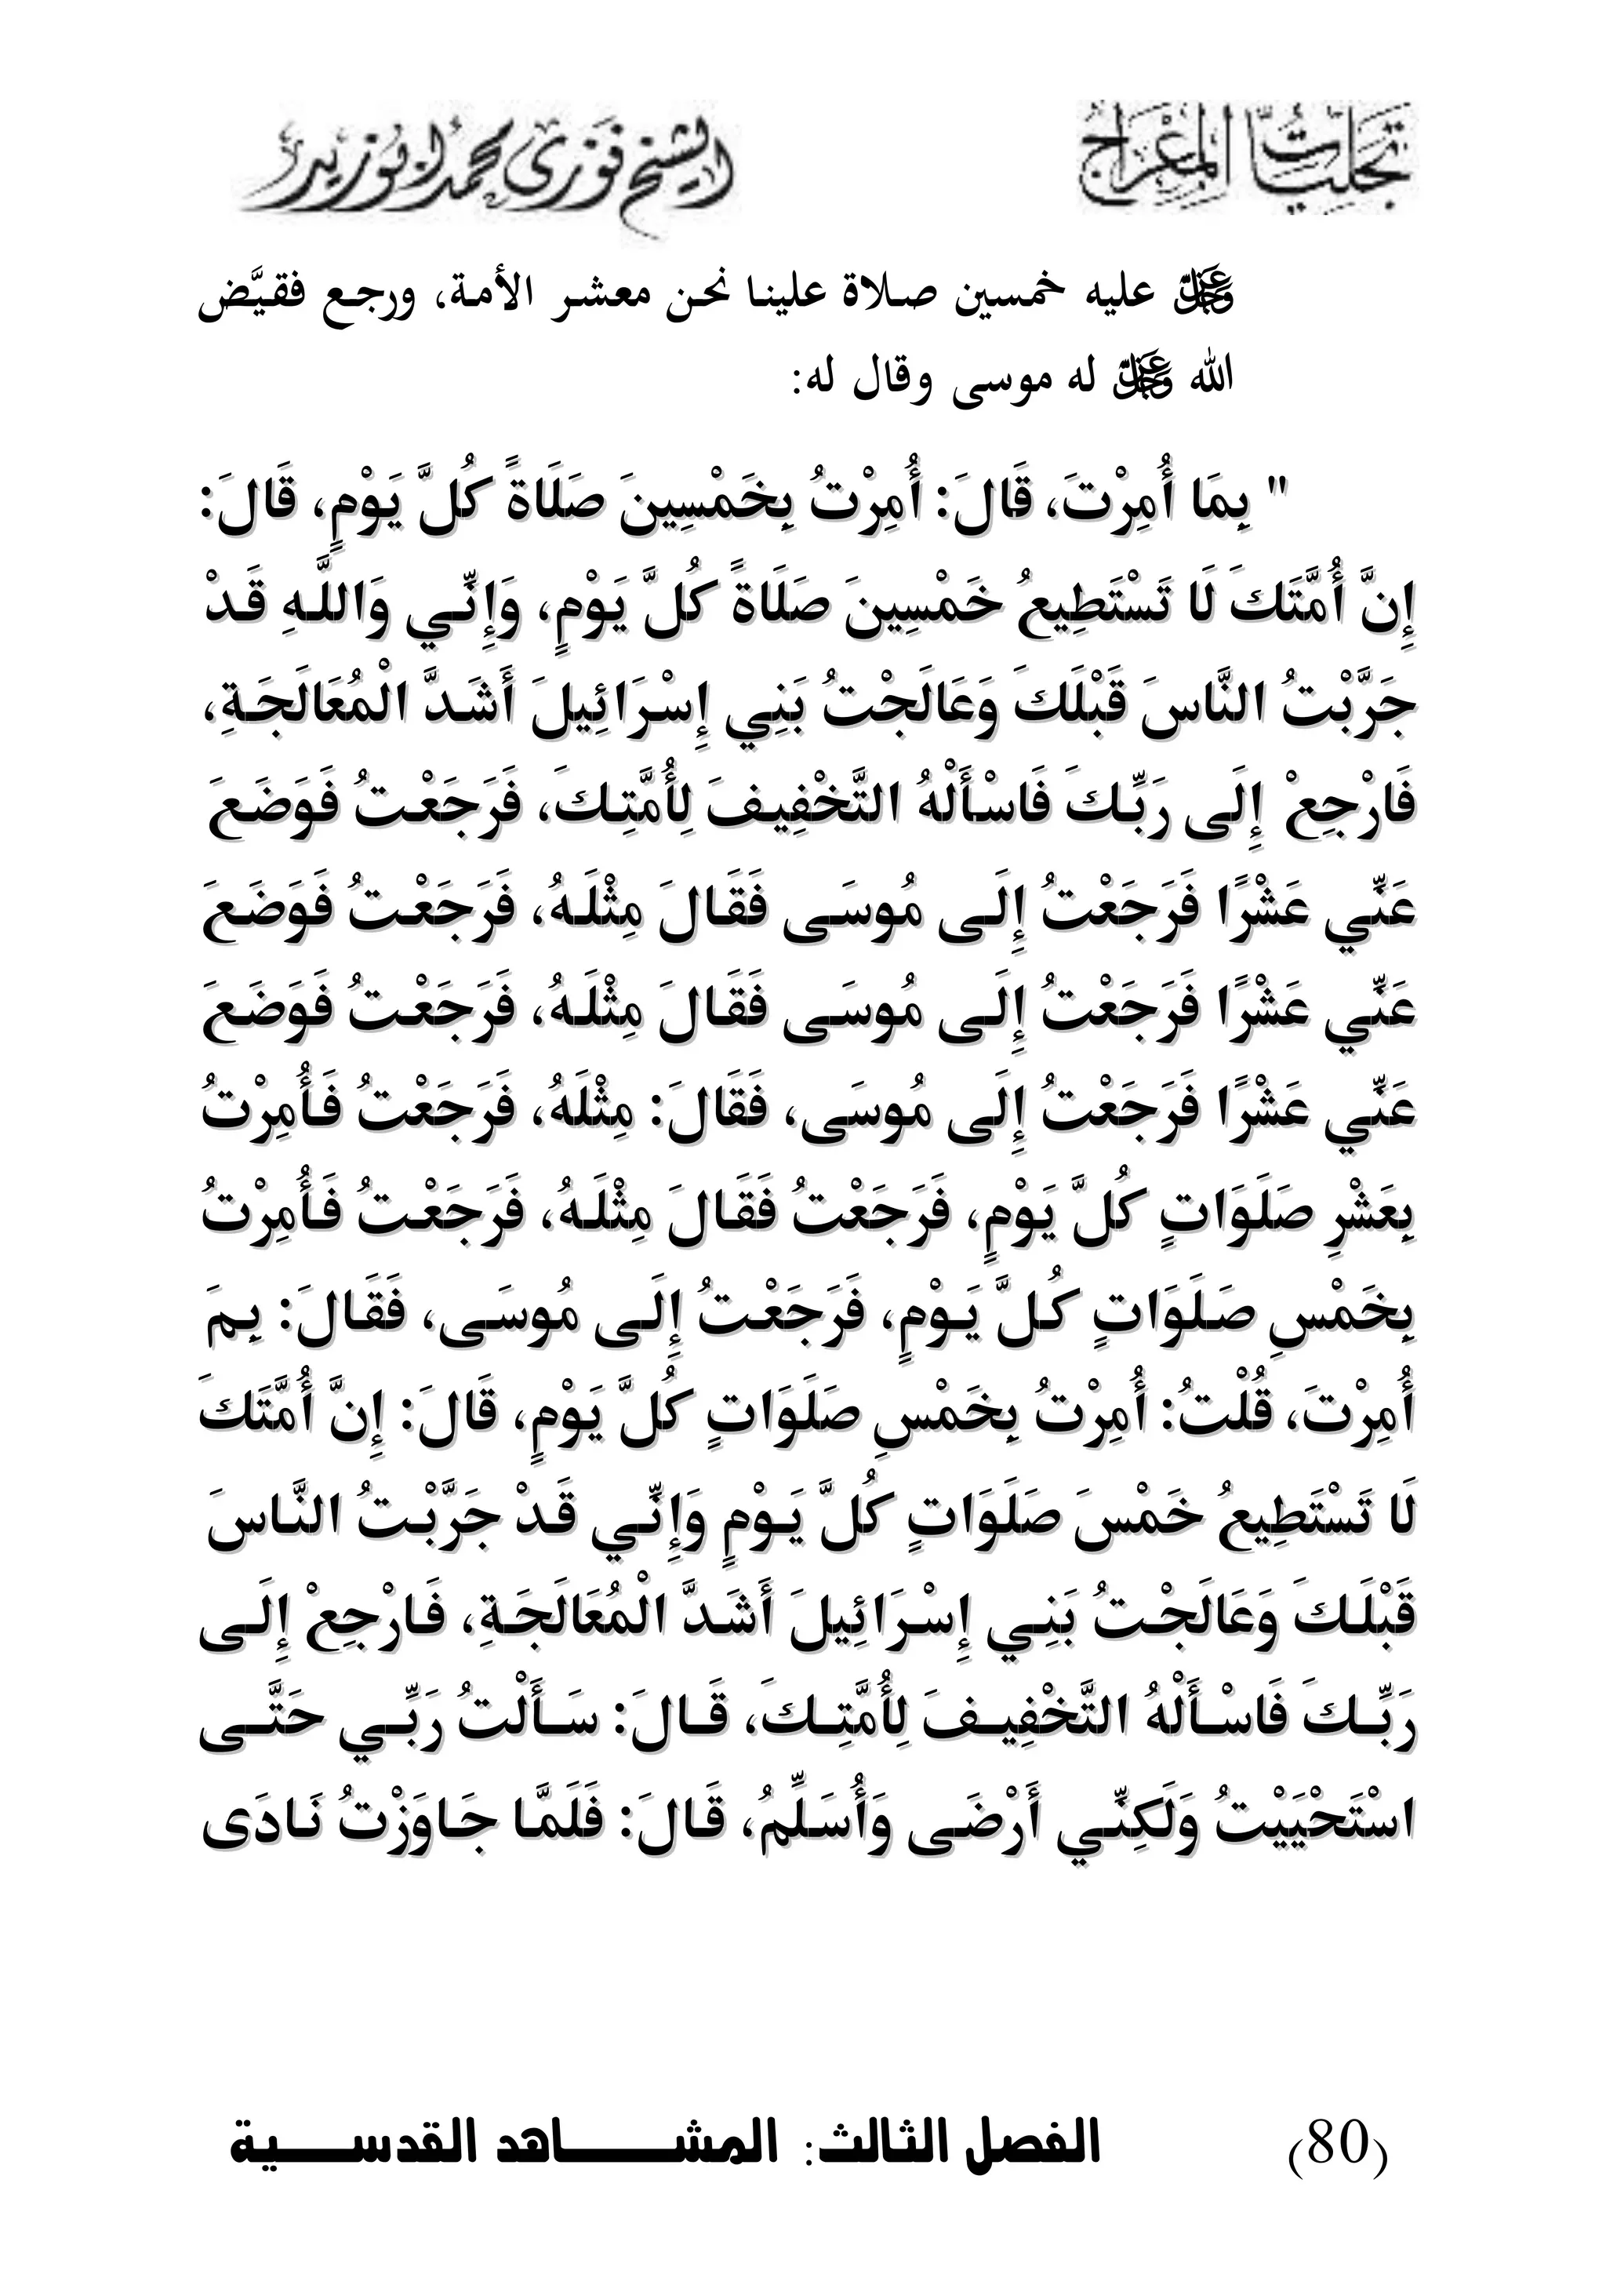 تجليات المعراج
الشيخ فوزى محمد أبوزيد
ﷻ عليه خمسين صلاة علينا نحن معشر الأمة، ورجع فقيَّض
الله ﷻ له موسى وقال له:
" بِمَا أُمِرْتَ، قَالَ: أُمِرْتُ بِخَمْسِينَ صَلَاةً كُلَّ يَوْمٍ، قَالَ:
إِنَّ أُمَّتَكَ لَا تَسْتَطِيعُ خَمْسِينَ صَلَاةً كُلَّ يَوْمٍ، وَإِنِّي وَاللَّهِ قَدْ
جَرَّبْتُ النَّاسَ قَبْلَكَ وَعَالَجْتُ بَنِي إِسْرَائِيلَ أَشَدَّ الْمُعَالَجَةِ،
فَارْجِعْ إِلَى رَبِّكَ فَاسْأَلْهُ التَّخْفِيفَ لِأُمَّتِكَ، فَرَجَعْتُ فَوَضَعَ
عَنِّي عَشْرًا فَرَجَعْتُ إِلَى مُوسَى فَقَالَ مِثْلَهُ، فَرَجَعْتُ فَوَضَعَ
عَنِّي عَشْرًا فَرَجَعْتُ إِلَى مُوسَى فَقَالَ مِثْلَهُ، فَرَجَعْتُ فَوَضَعَ
عَنِّي عَشْرًا فَرَجَعْتُ إِلَى مُوسَى، فَقَالَ: مِثْلَهُ، فَرَجَعْتُ فَأُمِرْتُ
بِعَشْرِ صَلَوَاتٍ كُلَّ يَوْمٍ، فَرَجَعْتُ فَقَالَ مِثْلَهُ، فَرَجَعْتُ فَأُمِرْتُ
بِخَمْسِ صَلَوَاتٍ كُلَّ يَوْمٍ، فَرَجَعْتُ إِلَى مُوسَى، فَقَالَ: بِمَ
أُمِرْتَ، قُلْتُ: أُمِرْتُ بِخَمْسِ صَلَوَاتٍ كُلَّ يَوْمٍ، قَالَ: إِنَّ أُمَّتَكَ
لَا تَسْتَطِيعُ خَمْسَ صَلَوَاتٍ كُلَّ يَوْمٍ وَإِنِّي قَدْ جَرَّبْتُ النَّاسَ
قَبْلَكَ وَعَالَجْتُ بَنِي إِسْرَائِيلَ أَشَدَّ الْمُعَالَجَةِ، فَارْجِعْ إِلَى
رَبِّكَ فَاسْأَلْهُ التَّخْفِيفَ لِأُمَّتِكَ، قَالَ: سَأَلْتُ رَبِّي حَتَّى
اسْتَحْيَيْتُ وَلَكِنِّي أَرْضَى وَأُسَلِّمُ، قَالَ: فَلَمَّا جَاوَزْتُ نَادَى
(80) الفصل الثالث: المشاهد القدسية